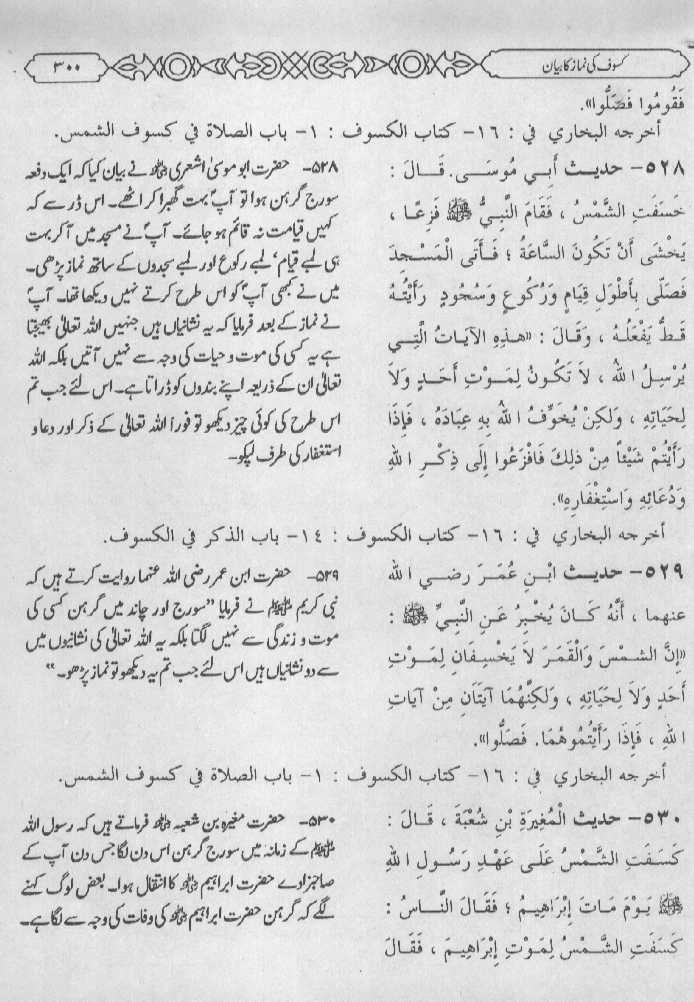 کسوف کی نماز کا بیان
۳۰۰
فَقُومُوا فَصَلُّوا».
أخرجه البخاري في : ١٦- كتاب الكسوف : ١- باب الصلاة في كسوف الشمس.
٥٢٨- حديث أَبِي مُوسَى. قَالَ :
خَسَفَتِ الشَّمْسُ ، فَقَامَ النَّبِيُّ ﷺ فَزِعًا ،
يَخْشَى أَنْ تَكُونَ السَّاعَةُ ؛ فَأَتَى الْمَسْجِدَ
فَصَلَّى بِأَطْوَلِ قِيَامٍ وَرُكُوعٍ وَسُجُودٍ رَأَيْتُهُ
قَطُّ يَفْعَلُهُ ، وَقَالَ : «هذِهِ الآيَاتُ الَّتِي
يُرْسِلُ اللهُ ، لاَ تَكُونُ لِمَوْتِ أَحَدٍ وَلاَ
لِحَيَاتِهِ ، وَلكِنْ يُخَوِّفُ اللهُ بِهِ عِبَادَهُ ، فَإِذَا
رَأَيْتُمْ شَيْئاً مِنْ ذلِكَ فَافْزَعُوا إِلَى ذِكْرِ اللهِ
وَدُعَائِهِ وَاسْتِغْفَارِهِ».
۵۲۸- حضرت ابو موسیٰ اشعری رضی اللہ عنہ نے بیان کیا کہ ایک دفعہ
سورج گرہن ہوا تو آپؐ بہت گھبرا کر اٹھے۔ اس ڈر سے کہ
کہیں قیامت نہ قائم ہو جائے۔ آپؐ نے مسجد میں آ کر بہت
ہی لمبے قیام‘ لمبے رکوع اور لمبے سجدوں کے ساتھ نماز پڑھی۔
میں نے کبھی آپؐ کو اس طرح کرتے نہیں دیکھا تھا۔ آپؐ
نے نماز کے بعد فرمایا کہ یہ نشانیاں ہیں جنہیں اللہ تعالیٰ بھیجتا
ہے یہ کسی کی موت و حیات کی وجہ سے نہیں آتیں بلکہ اللہ
تعالیٰ ان کے ذریعہ اپنے بندوں کو ڈراتا ہے۔ اس لئے جب تم
اس طرح کی کوئی چیز دیکھو تو فوراً اللہ تعالیٰ کے ذکر اور دعا و
استغفار کی طرف لپکو۔
أخرجه البخاري في : ١٦- كتاب الكسوف : ١٤- باب الذكر في الكسوف.
٥٢٩- حديث ابْنِ عُمَرَ رضي الله
عنهما ، أَنَّهُ كَانَ يُخْبِرُ عَنِ النَّبِيِّ ﷺ :
«إِنَّ الشَّمْسَ وَالْقَمَرَ لاَ يَخْسِفَانِ لِمَوْتِ
أَحَدٍ وَلاَ لِحَيَاتِهِ ، وَلكِنَّهُمَا آيَتَانِ مِنْ آيَاتِ
اللهِ ، فَإِذَا رَأَيْتُمُوهُمَا. فَصَلُّوا».
۵۲۹- حضرت ابن عمر رضی اللہ عنہما روایت کرتے ہیں کہ
نبی کریم ﷺ نے فرمایا ”سورج اور چاند میں گرہن کسی کی
موت و زندگی سے نہیں لگتا بلکہ یہ اللہ تعالیٰ کی نشانیوں میں
سے دو نشانیاں ہیں اس لئے جب تم یہ دیکھو تو نماز پڑھو۔“
أخرجه البخاري في : ١٦- كتاب الكسوف : ١- باب الصلاة في كسوف الشمس.
٥٣٠- حديث الْمُغِيرَةِ بْنِ شُعْبَةَ ، قَالَ :
كَسَفَتِ الشَّمْسُ عَلَى عَهْدِ رَسُولِ اللهِ
ﷺ يَوْمَ مَاتَ إِبْرَاهِيمُ ؛ فَقَالَ النَّاسُ :
كَسَفَتِ الشَّمْسُ لِمَوْتِ إِبْرَاهِيمَ ، فَقَالَ
۵۳۰- حضرت مغیرہ بن شعبہ رضی اللہ عنہ فرماتے ہیں کہ رسول اللہ
ﷺ کے زمانہ میں سورج گرہن اس دن لگا جس دن آپ کے
صاحبزادے حضرت ابراہیم رضی اللہ عنہ کا انتقال ہوا۔ بعض لوگ کہنے
لگے کہ گرہن حضرت ابراہیم رضی اللہ عنہ کی وفات کی وجہ سے لگا ہے۔